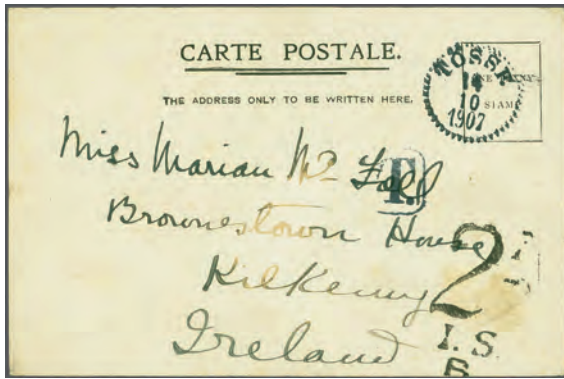 CARTE POSTALE.
THE ADDRESS ONLY TO BE WRITTEN HERE.
TOSSE
14
10
1907
Miss Marian Mc Fall
T.
Brownestown House
2
Kilkenny
I.S.
Ireland